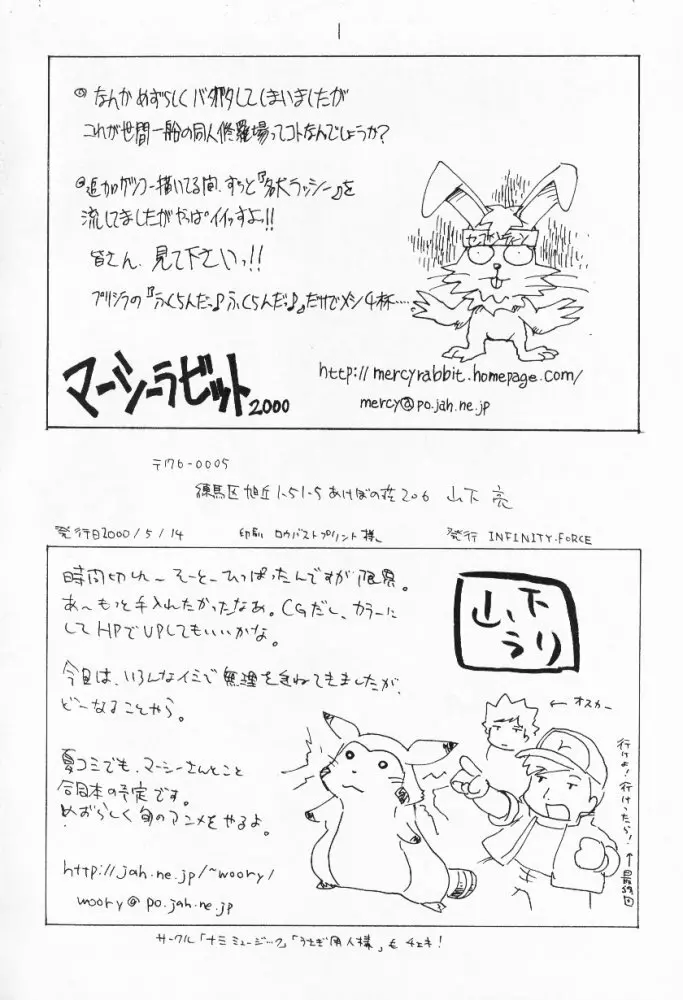 ◎なんかめずらしくバタバタしてしまいましたが
これが世間一般の同人修羅場ってコトなんでしょうか?
◎追加ゲンコー描いてる間、ずっと『名犬ラッシー』を
流してましたがやっぱイイッすよっ!!
皆さん、見て下さいっ!!
プリシラの『ふくらんだっ♪ふくらんだっ♪』だけでメシ4杯……
セブンティーン
http://mercyrabbit.homepage.com/
mercy@po.jah.ne.jp
マーシーラビット2000
〒176-0005
練馬区旭丘1-51-5あけぼの荘206 山下 亮
発行日2000/5/14 印刷 ロウバストプリント様 発行 INFINITY-FORCE
時間切れ〜そーとーひっぱったんですが限界。
あ〜もっと手入れたかったなあ。CGだし、カラーに
してHPでUPしてもいいかな。
今回は、いろんなイミで無理をきかねてきましたが、
どーなることやら。
夏コミでも、マーシーさんとこと
合同本の予定です。
めずらしく旬のアニメをやるよ。
http://jah.ne.jp/~woory/
woory@po.jah.ne.jp
山下
うり
←オスカー
行けよ!行けったら!
↑最終回
サークル「ナミミュージック」「うさぎ同人様」もチェキ!